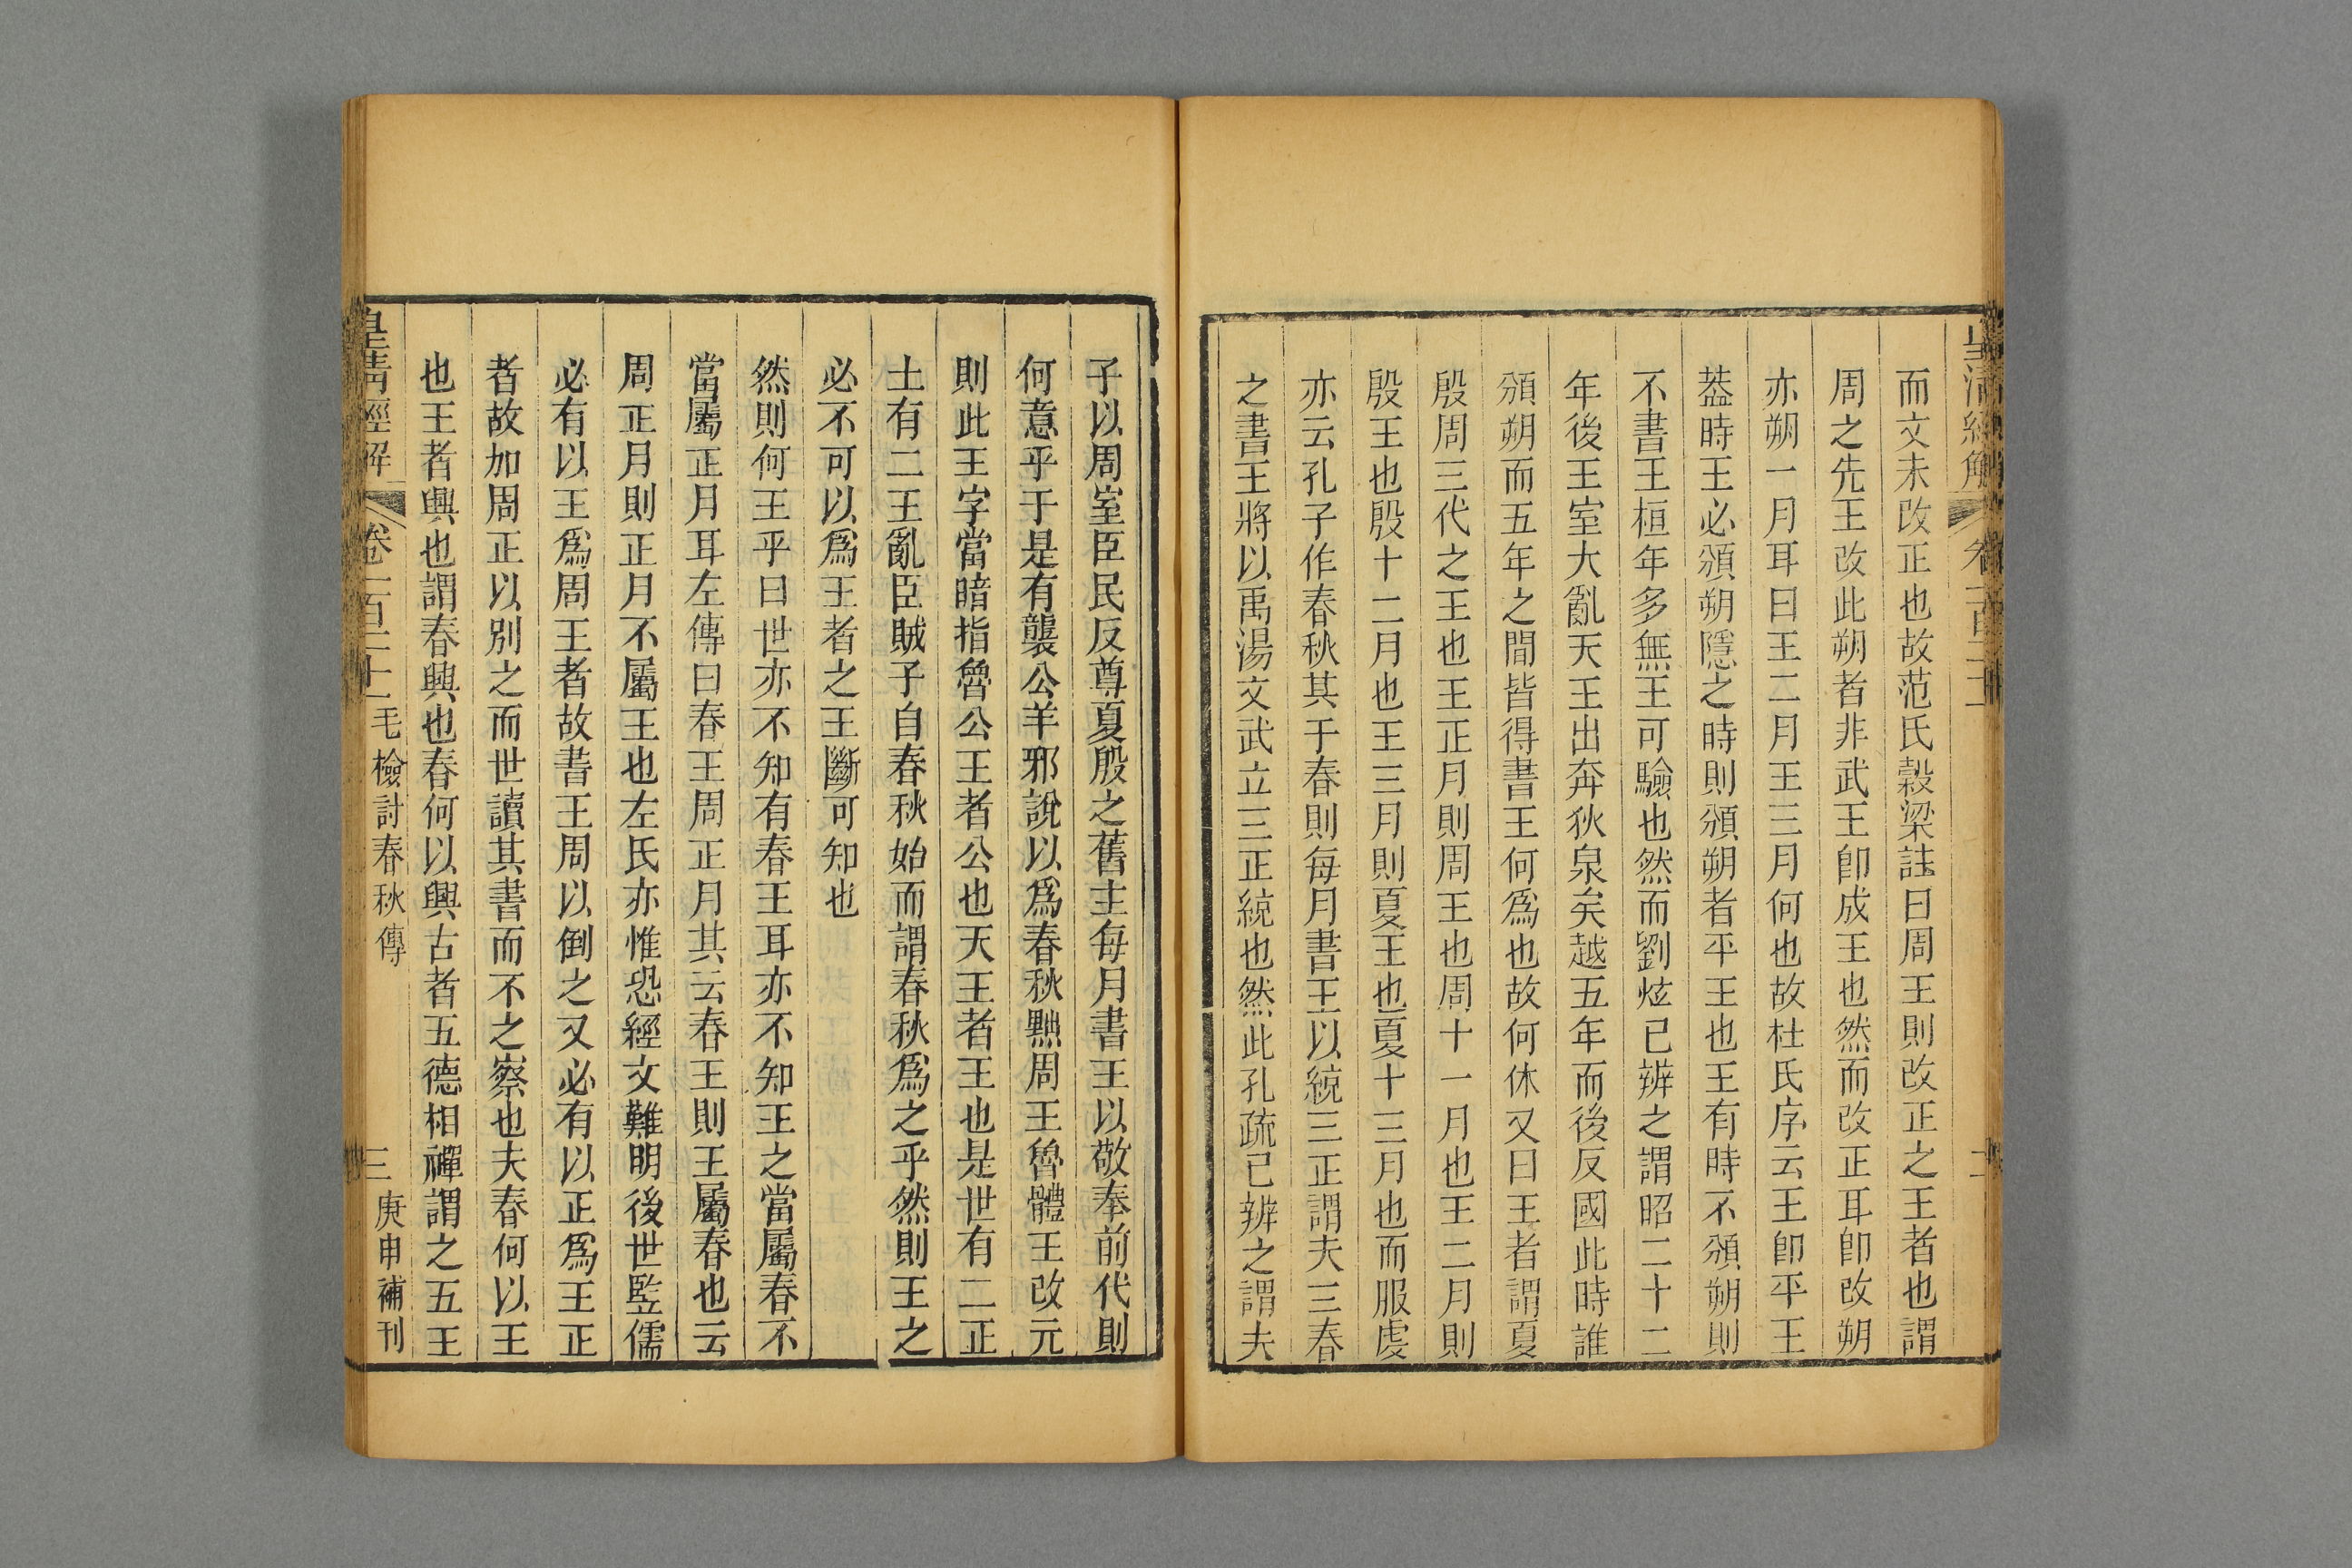 皇清經解 卷一百二十一 二
而文未改正也故范氏榖梁註曰周王則改正之王者也謂
周之先王改此朔者非武王卽成王也然而改正耳卽改朔
亦朔一月耳曰王二月王三月何也故杜氏序云王卽平王
葢時王必頒朔隱之時則頒朔者平王也王有時不頒朔則
不書王桓年多無王可驗也然而劉炫已辨之謂昭二十二
年後王室大亂天王出奔狄泉矣越五年而後反國此時誰
頒朔而五年之間皆得書王何爲也故何休又曰王者謂夏
殷周三代之王也王正月則周王也周十一月也王二月則
殷王也殷十二月也王三月則夏王也夏十三月也而服虔
亦云孔子作春秋其于春則每月書王以統三正謂夫三春
之書王將以禹湯文武立三正統也然此孔疏已辨之謂夫
子以周室臣民反尊夏殷之舊主每月書王以敬奉前代則
何意乎于是有襲公羊邪說以爲春秋黜周王魯體王改元
則此王字當暗指魯公王者公也天王者王也是世有二正
土有二王亂臣賊子自春秋始而謂春秋爲之乎然則王之
必不可以爲王者之王斷可知也
然則何王乎曰世亦不知有春王耳亦不知王之當屬春不
當屬正月耳左傳曰春王周正月其云春王則王屬春也云
周正月則正月不屬王也左氏亦惟恐經文難明後世監儒
必有以王爲周王者故書王周以倒之又必有以正爲王正
者故加周正以別之而世讀其書而不之察也夫春何以王
也王者興也謂春興也春何以興古者五德相禪謂之五王
皇清經解 卷一百二十一 毛檢討春秋傳 三 庚申補刊